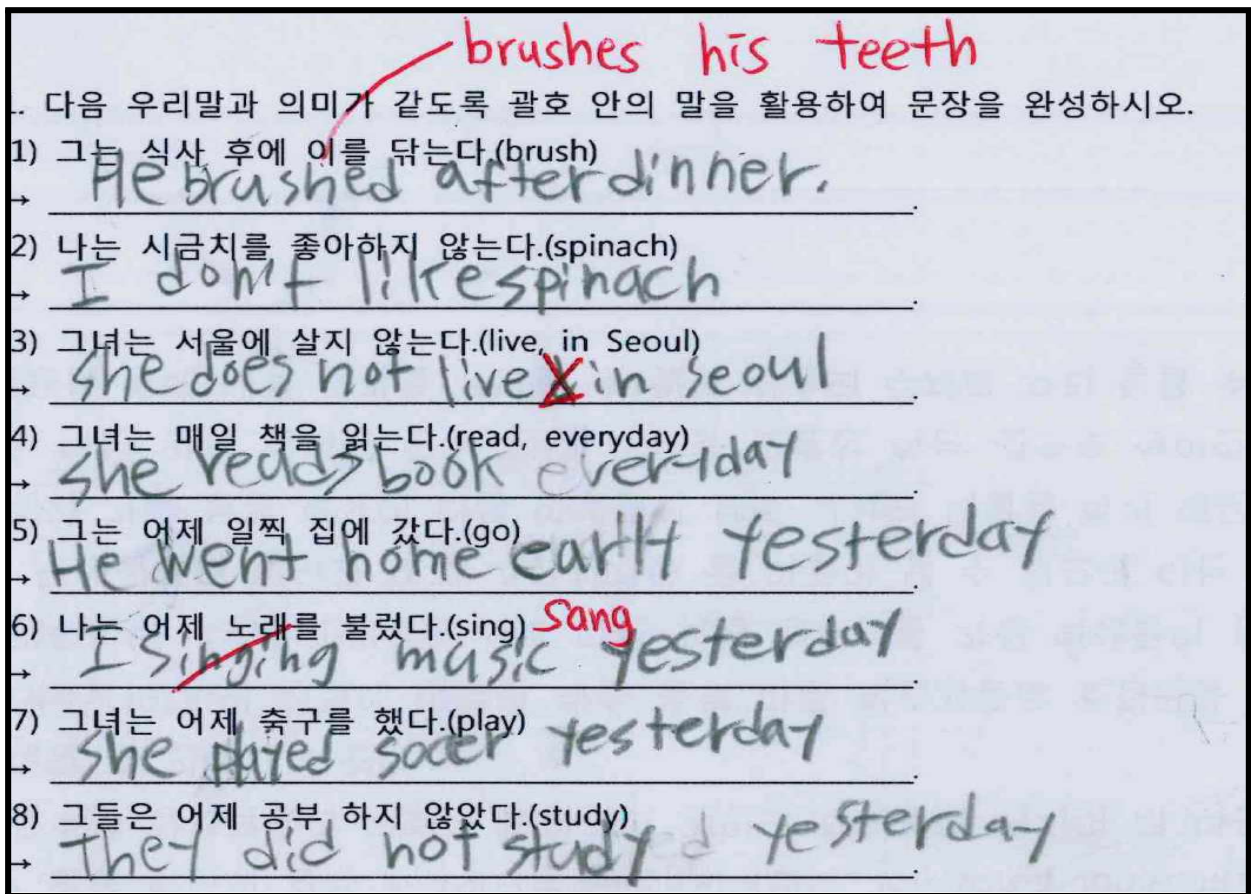 brushes his teeth
.. 다음 우리말과 의미가 같도록 괄호 안의 말을 활용하여 문장을 완성하시오.
1) 그는 식사 후에 이를 닦는다.(brush)
→ He brushed after dinner.
2) 나는 시금치를 좋아하지 않는다.(spinach)
→ I don't like spinach
3) 그녀는 서울에 살지 않는다.(live, in Seoul)
→ she does not live in seoul
4) 그녀는 매일 책을 읽는다.(read, everyday)
→ she reads book everyday
5) 그는 어제 일찍 집에 갔다.(go)
→ He went home early yesterday
6) 나는 어제 노래를 불렀다.(sing) Sang
→ I singing music yesterday
7) 그녀는 어제 축구를 했다.(play)
→ she played socer yesterday
8) 그들은 어제 공부 하지 않았다.(study)
→ they did not study yesterday